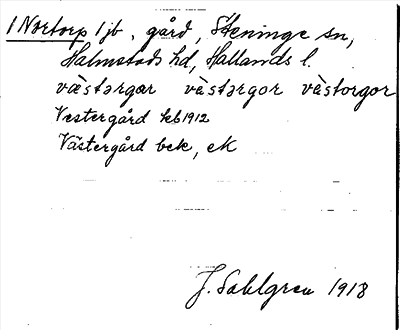 1 Nortorp 1 jb., gård, Steninge sn,
Halmstads hd, Hallands l.
væ̀stərgær væ̀stərgor væ̀storgor
Vestergård kb 1912
Västergård bek, ek
J. Sahlgren 1918